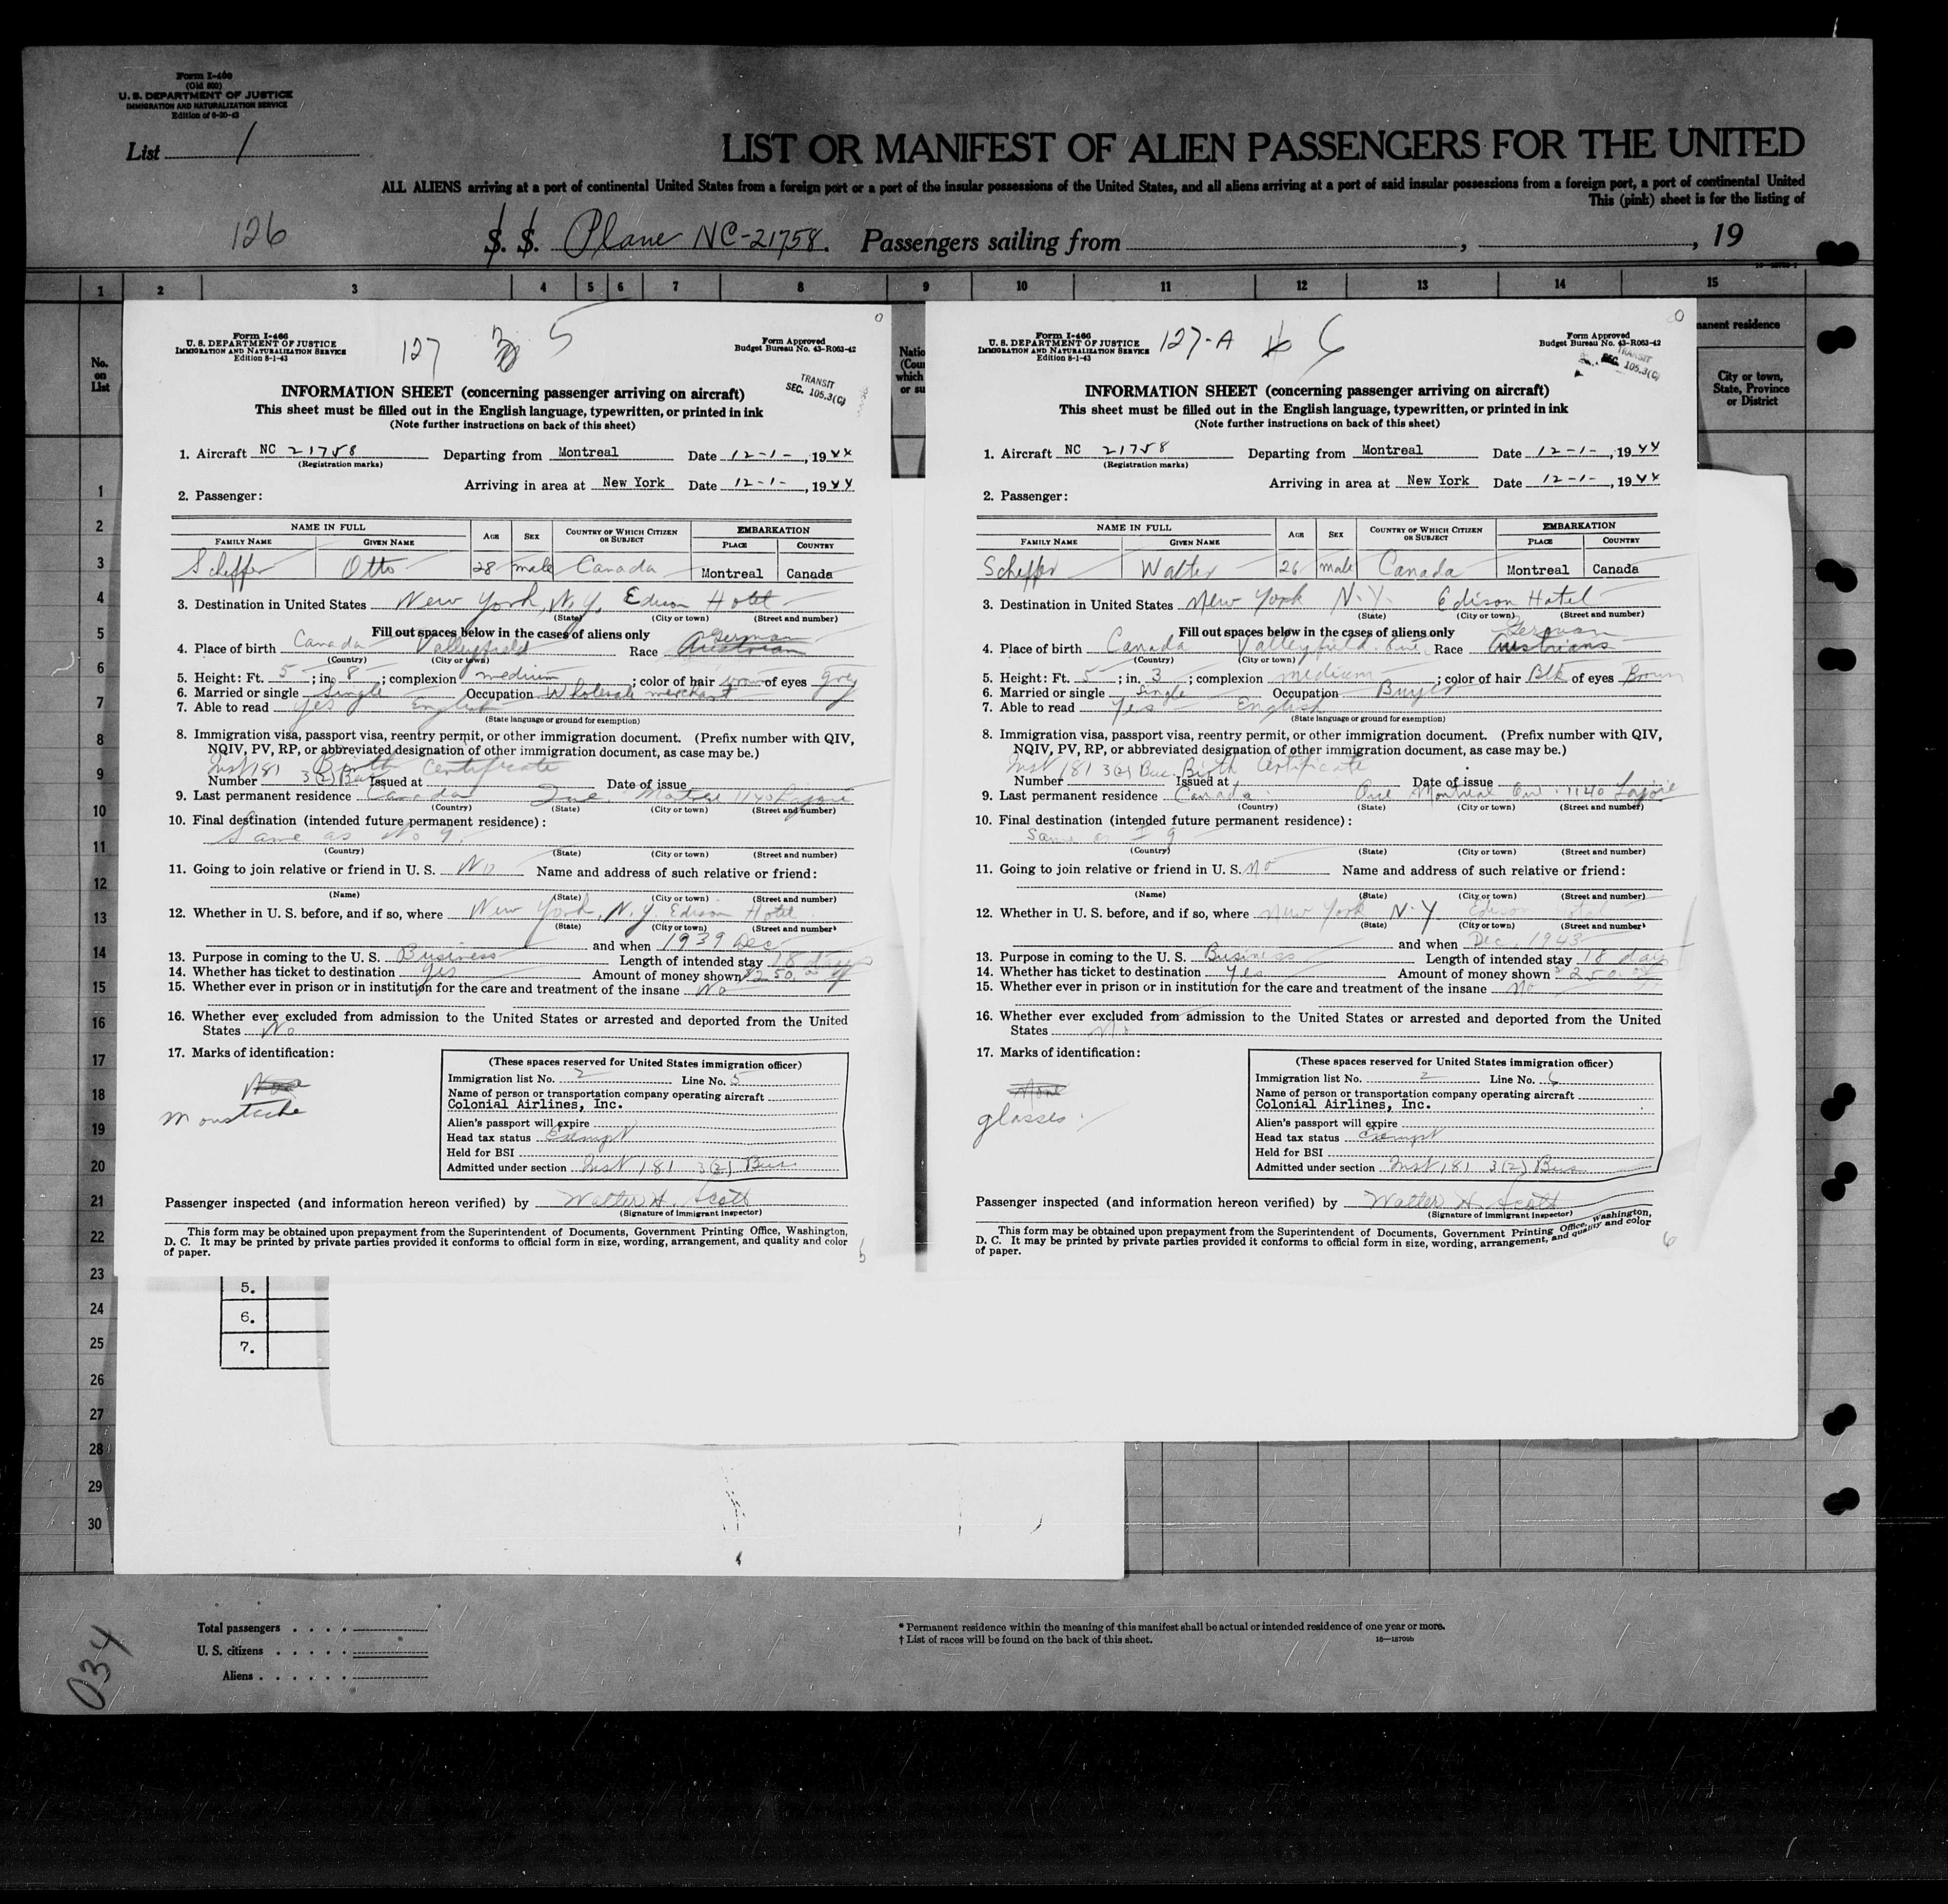 Form I-460
(Old 500)
U. S. DEPARTMENT OF JUSTICE
IMMIGRATION AND NATURALIZATION SERVICE
Edition of 6-20-43
List 1
LIST OR MANIFEST OF ALIEN PASSENGERS FOR THE UNITED
ALL ALIENS arriving at a port of continental United States from a foreign port or a port of the insular possessions of the United States, and all aliens arriving at a port of said insular possessions from a foreign port, a port of continental United
This (pink) sheet is for the listing of
126 S. S. Plane NC-21758. Passengers sailing from , , 19
1 2 3 4 5 6 7 8 9 10 11 12 13 14 15
No. on List
City or town, State, Province or District
Form I-466
U. S. DEPARTMENT OF JUSTICE
IMMIGRATION AND NATURALIZATION SERVICE
Edition 8-1-43
127 5
Form Approved
Budget Bureau No. 43-R063-42
TRANSIT
SEC. 105.3(C)
INFORMATION SHEET (concerning passenger arriving on aircraft)
This sheet must be filled out in the English language, typewritten, or printed in ink
(Note further instructions on back of this sheet)
1. Aircraft NC 21758 Departing from Montreal Date 12-1-, 1944
(Registration marks)
Arriving in area at New York Date 12-1-, 1944
2. Passenger:
NAME IN FULL AGE SEX COUNTRY OF WHICH CITIZEN OR SUBJECT EMBARKATION
FAMILY NAME GIVEN NAME PLACE COUNTRY
Scheffer Otto 28 male Canada Montreal Canada
3. Destination in United States New York, N.Y. Edison Hotel
(State) (City or town) (Street and number)
Fill out spaces below in the cases of aliens only
4. Place of birth Canada Valleyfield Race Austrian German
(Country) (City or town)
5. Height: Ft. 5; in. 8; complexion medium; color of hair brown of eyes Grey
6. Married or single Single Occupation Wholesale merchant
7. Able to read yes English
(State language or ground for exemption)
8. Immigration visa, passport visa, reentry permit, or other immigration document. (Prefix number with QIV,
NQIV, PV, RP, or abbreviated designation of other immigration document, as case may be.)
Inst 181 3(2) Bus Birth Certificate
Number Issued at Date of issue
9. Last permanent residence Canada Que. 1140
(Country) (State) (City or town) (Street and number)
10. Final destination (intended future permanent residence):
Same as No 9.
(Country) (State) (City or town) (Street and number)
11. Going to join relative or friend in U. S. No Name and address of such relative or friend:
(Name) (State) (City or town) (Street and number)
12. Whether in U. S. before, and if so, where New York, N.Y. Edison Hotel
(State) (City or town) (Street and number)
and when 1939 Dec
13. Purpose in coming to the U. S. Business Length of intended stay 18 days
14. Whether has ticket to destination Yes Amount of money shown $250.00
15. Whether ever in prison or in institution for the care and treatment of the insane No
16. Whether ever excluded from admission to the United States or arrested and deported from the United
States No
17. Marks of identification:
None
Moustache
(These spaces reserved for United States immigration officer)
Immigration list No. 2 Line No. 5
Name of person or transportation company operating aircraft
Colonial Airlines, Inc.
Alien's passport will expire
Head tax status Exempt
Held for BSI
Admitted under section Inst 181 3(2) Bus.
Passenger inspected (and information hereon verified) by Walter H. Scott
(Signature of immigrant inspector)
This form may be obtained upon prepayment from the Superintendent of Documents, Government Printing Office, Washington,
D. C. It may be printed by private parties provided it conforms to official form in size, wording, arrangement, and quality and color
of paper.
Form I-466
U. S. DEPARTMENT OF JUSTICE
IMMIGRATION AND NATURALIZATION SERVICE
Edition 8-1-43
127-A 6
Form Approved
Budget Bureau No. 43-R063-42
TRANSIT
SEC. 105.3(C)
INFORMATION SHEET (concerning passenger arriving on aircraft)
This sheet must be filled out in the English language, typewritten, or printed in ink
(Note further instructions on back of this sheet)
1. Aircraft NC 21758 Departing from Montreal Date 12-1-, 1944
(Registration marks)
Arriving in area at New York Date 12-1-, 1944
2. Passenger:
NAME IN FULL AGE SEX COUNTRY OF WHICH CITIZEN OR SUBJECT EMBARKATION
FAMILY NAME GIVEN NAME PLACE COUNTRY
Scheffer Walter 26 male Canada Montreal Canada
3. Destination in United States New York N.Y. Edison Hotel
(State) (City or town) (Street and number)
Fill out spaces below in the cases of aliens only
4. Place of birth Canada Valleyfield. Que. Race Austrians German
(Country) (City or town)
5. Height: Ft. 5; in. 3; complexion medium; color of hair Blk of eyes Brown
6. Married or single Single Occupation Buyer
7. Able to read Yes English
(State language or ground for exemption)
8. Immigration visa, passport visa, reentry permit, or other immigration document. (Prefix number with QIV,
NQIV, PV, RP, or abbreviated designation of other immigration document, as case may be.)
Inst 181 3(2) Bus. Birth Certificate
Number Issued at Date of issue
9. Last permanent residence Canada Que Montreal Que. 1140 Lajoie
(Country) (State) (City or town) (Street and number)
10. Final destination (intended future permanent residence):
Same as # 9
(Country) (State) (City or town) (Street and number)
11. Going to join relative or friend in U. S. No Name and address of such relative or friend:
(Name) (State) (City or town) (Street and number)
12. Whether in U. S. before, and if so, where New York N.Y Edison Hotel
(State) (City or town) (Street and number)
and when Dec. 1943
13. Purpose in coming to the U. S. Business Length of intended stay 18 days
14. Whether has ticket to destination Yes Amount of money shown $250.00
15. Whether ever in prison or in institution for the care and treatment of the insane No
16. Whether ever excluded from admission to the United States or arrested and deported from the United
States No
17. Marks of identification:
None
glasses.
(These spaces reserved for United States immigration officer)
Immigration list No. 2 Line No. 6
Name of person or transportation company operating aircraft
Colonial Airlines, Inc.
Alien's passport will expire
Head tax status Exempt
Held for BSI
Admitted under section Inst 181 3(2) Bus
Passenger inspected (and information hereon verified) by Walter H. Scott
(Signature of immigrant inspector)
This form may be obtained upon prepayment from the Superintendent of Documents, Government Printing Office, Washington,
D. C. It may be printed by private parties provided it conforms to official form in size, wording, arrangement, and quality and color
of paper.
6
1
2
3
4
5
6
7
8
9
10
11
12
13
14
15
16
17
18
19
20
21
22
23
24
25
26
27
28
29
30
5.
6.
7.
034
Total passengers
U. S. citizens
Aliens
* Permanent residence within the meaning of this manifest shall be actual or intended residence of one year or more.
† List of races will be found on the back of this sheet.
16—18709b